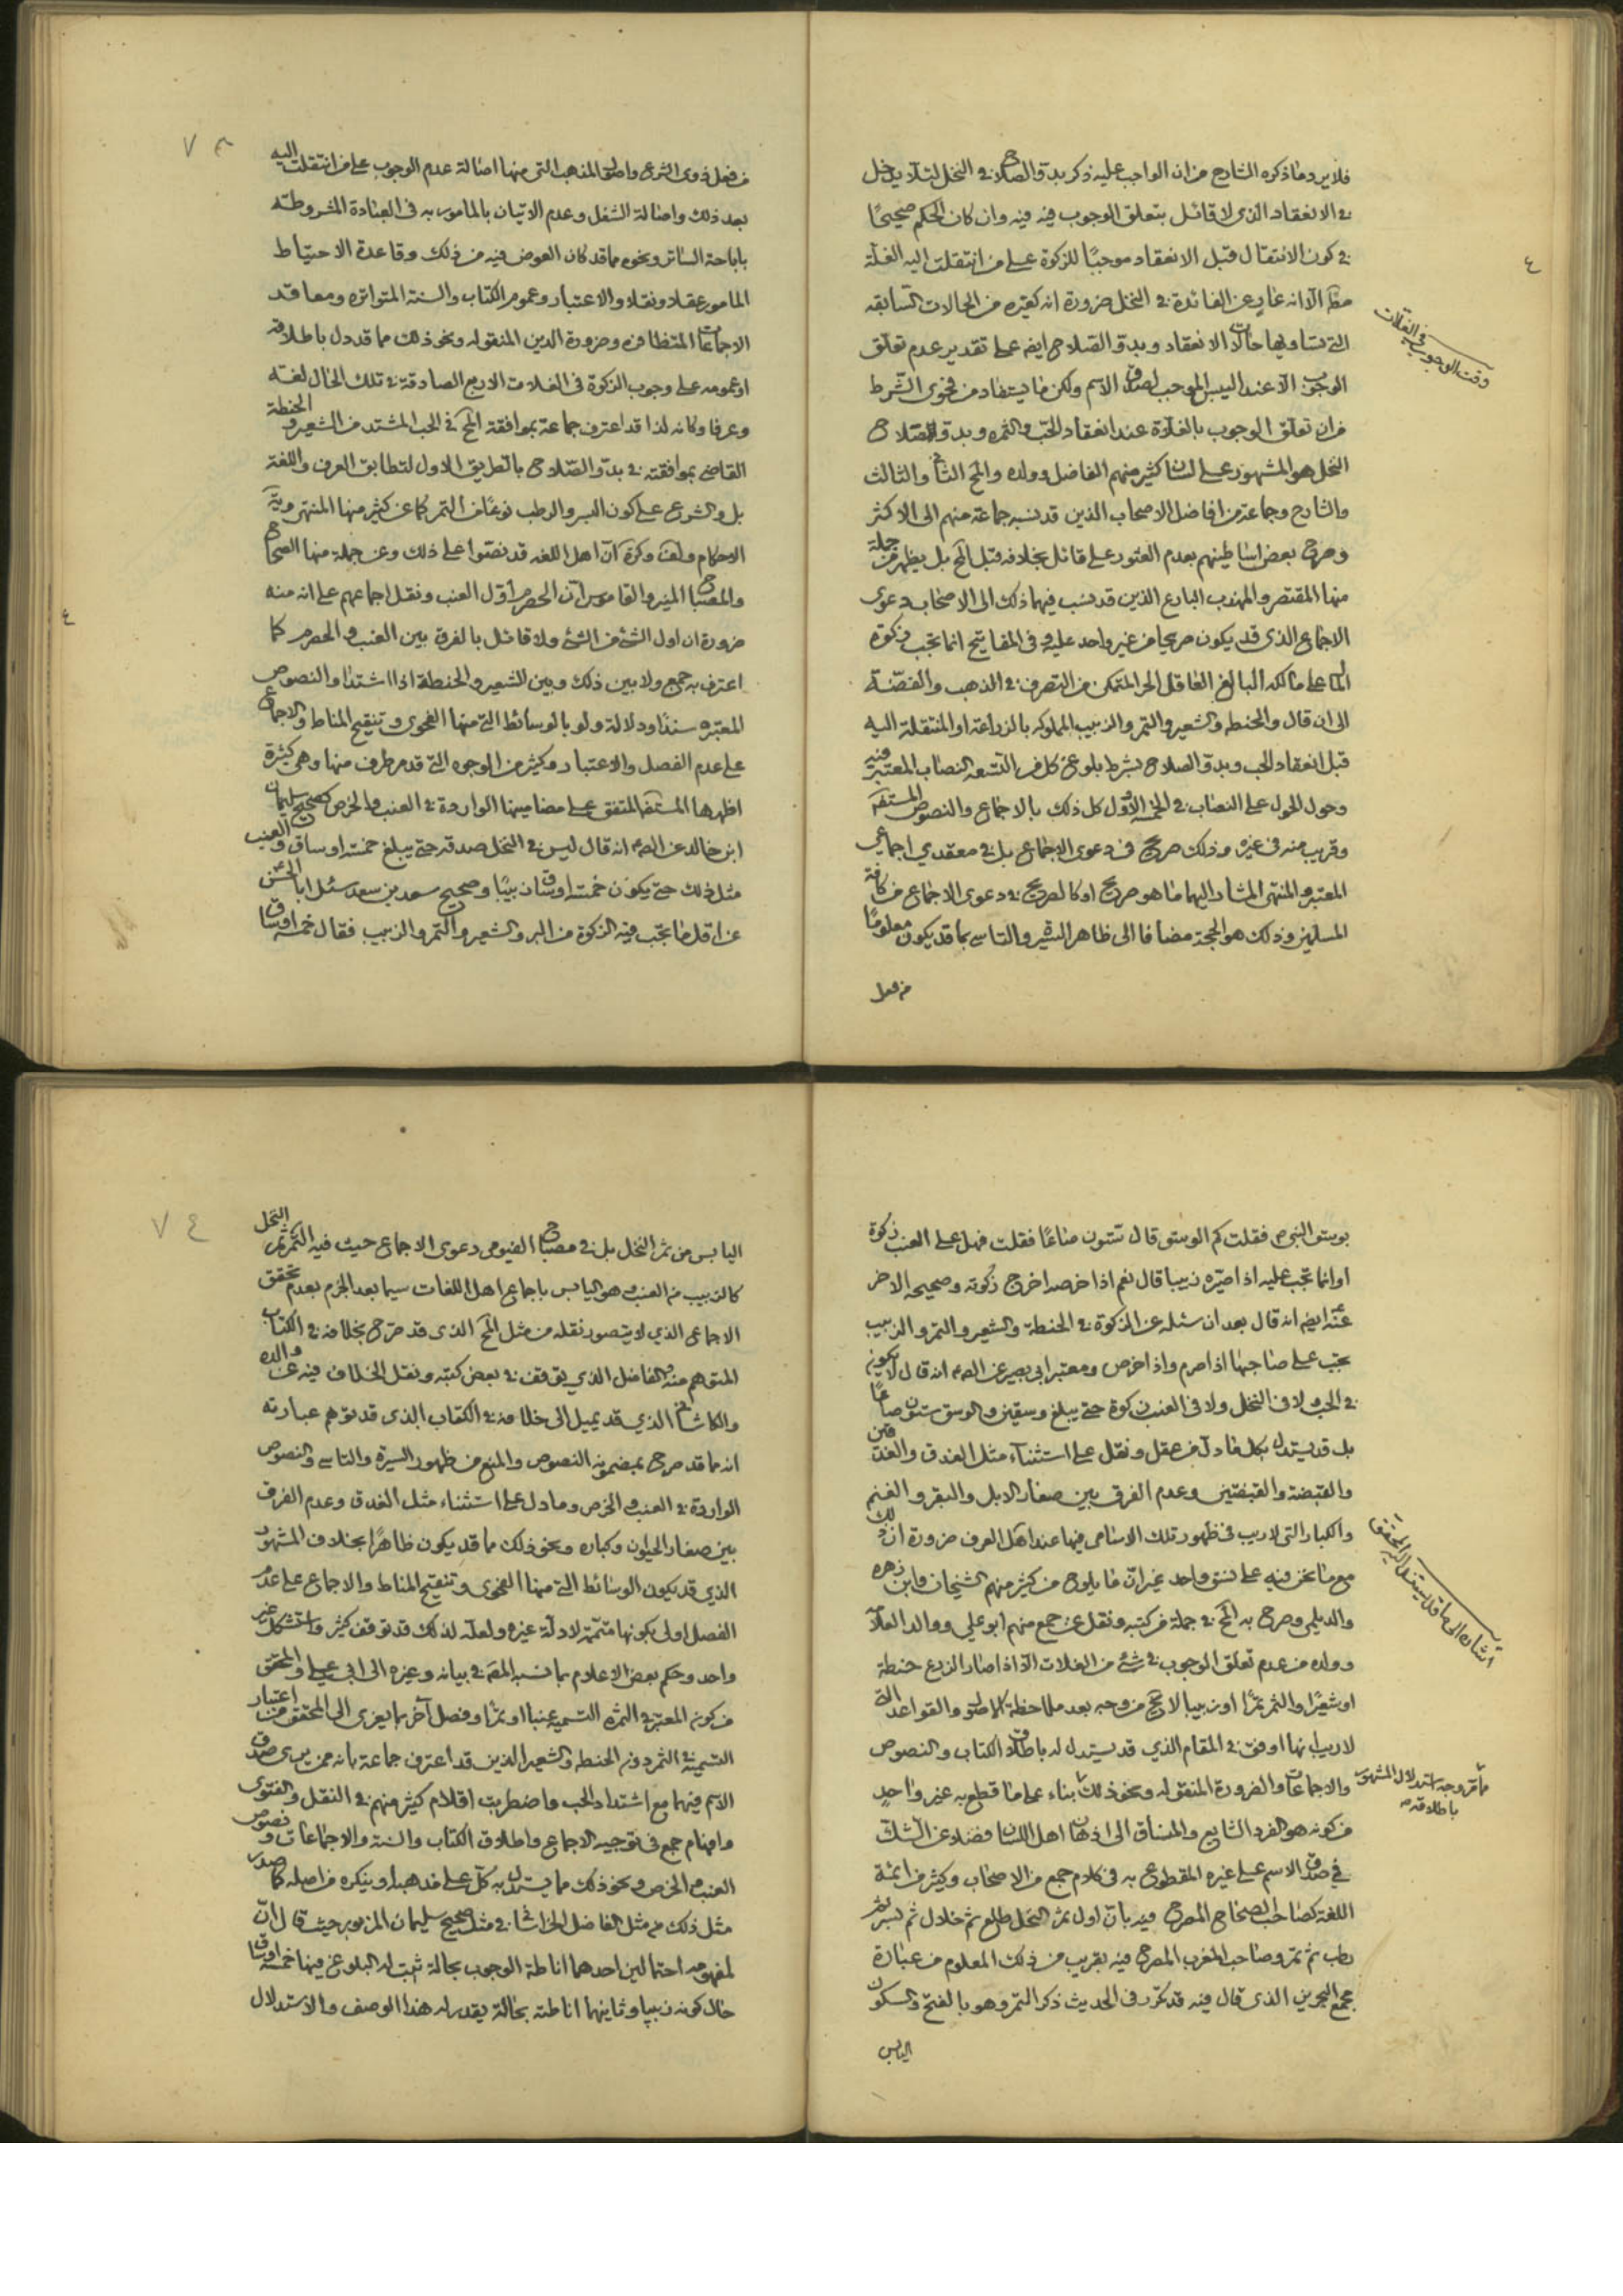 فلا يرد ما ذكره الشارح من ان الواجب عليه ذكر بدو الصلاح في النخل لئلا يدخل
في الانعقاد الذى لا قائل بتعلق الوجوب فيه فيه وان كان الحكم صحيحًا
في كون الانتقال قبل الانعقاد موجبًا للزكوة على من انتقلت اليه الغلة
الا انه عار عن الفائدة في النخل ضرورة انه كغيره من الحالات السابقه
التى تساويها حالات الانعقاد وبدو الصلاح ايضه على تقدير عدم تعلق
الوجوب الا عند اليبس الموجب لصدق الاسم ولكن ما يستفاد من فحوى الشرط
من ان تعلق الوجوب بالغلاة عند انعقاد الحب والثمره وبدو الصلاح
النخل هو المشهور على لسان كثير منهم الفاضل وولده والمح الثانى والثالث
والشارح وجماعة من افاضل الاصحاب الذين قد نسبه جماعة منهم الى الاكثر
وصرح بعض اساطينهم بعدم العثور على قائل بخلافه قبل المح بل يظهر من جملة
منها المقتصر والمهذب البارع الذين قد نسب فيهما ذلك الى الاصحاب دعوى
الاجماع الذى قد يكون صريحا من غير واحد عليه وفى المفاتيح انما تجب زكوة
المال على مالكه البالغ العاقل الحر المتمكن من التصرف في الذهب والفضة
الى ان قال والحنطه والشعير والتمر والزبيب المملوكه بالزراعة او المنتقلة اليه
قبل انعقاد الحب وبدو الصلاح بشرط بلوغ كل من التسعه النصاب المعتبر فيه
وحول الحول على النصاب في الخمسة الاول كل ذلك بالاجماع والنصوص المستفيضه
وقريب منه فى غيره وذلك صريح فى دعوى الاجماع بل في معقدي اجماعي
المعتبر والمنتهى المشار اليهما ما هو صريح او كالصريح في دعوى الاجماع من كافة
المسلمين وذلك هو الحجة مضافا الى ظاهر السير والتاسى بما قد يكون معلومًا
من فعل
وقت الوجوب فى الغلات
٤
٧٣
من فعل ذوى الشرع واصول المذهب التى منها اصالة عدم الوجوب على من انتقلت اليه
بعد ذلك واصالة الشغل وعدم الاتيان بالمامور به فى العبادة المشروطة
باباحة الساتر ونحوه مما قد كان العوض فيه من ذلك وقاعدة الاحتياط
المامور عقلا ونقلا والاعتبار وعموم الكتاب والسنة المتواتره ومعاقد
الاجماعات المتظافره وضرورة الدين المنقوله ونحو ذلك مما قد دل باطلاقه
او عمومه على وجوب الزكوة فى الغلات الاربع الصادقة في تلك الحال لغة
وعرفا وكانه لذا قد اعترف جماعة بموافقة المح في الحب المشتد من الشعير والحنطة
القاضى بموافقته في بدو الصلاح بالطريق الاول لتطابق العرف واللغة
بل والشرع على كون البسر والرطب نوعًا من التمر كما عن كثير منها المنتهى ونهاية
الاحكام ولف وكرة ان اهل اللغه قد نصوا على ذلك وعن جملة منها الصحاح
والمصباح المنير والقاموس ان الحصرم اول العنب ونقل اجماعهم على انه منه
ضرورة ان اول الشئ من الشئ ولا قائل بالفرق بين العنب والحصرم كما
اعترف به جمع ولا بين ذلك وبين الشعير والحنطة اذا اشتدا والنصوص
المعتبره سندا ودلالة ولو بالوسائط التى منها الفحوى وتنقيح المناط والاجماع
على عدم الفصل والاعتبار وكثير من الوجوه التى قد مر طرف منها وهى كثيرة
اظهرها المستفيضه المتفق على مضامينها الواردة في العنب والخرص كصحيح سليمان
ابن خالد عن الصم انه قال ليس في النخل صدقة حتى يبلغ خمسة اوساق والعنب
مثل ذلك حتى يكون خمسة اوساق زبيبًا وصحيح سعد بن سعد سئل ابا الحسن
عن اقل ما تجب فيه الزكوة من البر والشعير والتمر والزبيب فقال خمسة اوساق
بوسق النبى ص فقلت كم الوسق قال ستون صاعًا فقلت فهل على العنب زكوة
او انما تجب عليه اذا صيره زبيبا قال نعم اذا خرصه اخرج زكوته وصحيحه الاخر
عنه ايضه انه قال بعد ان سئله عن الزكوة في الحنطة والشعير والتمر والزبيب
تجب على صاحبها اذا صرم واذا خرص ومعتبر ابى بصير عن الصم انه قال لا يكون
في الحب ولا فى النخل ولا فى العنب زكوة حتى يبلغ وسقين والوسق ستون صاعًا
بل قد يستدل بكل ما دل من عقل ونقل على استثناء مثل العذق والعذقين
والقبضة والقبضتين وعدم الفرق بين صغار الابل والبقر والغنم
والكبار التى لا ريب فى ظهور تلك الاسامى فيها عند اهل العرف ضرورة ان ذلك
مع ما نحن فيه على نسق واحد غير ان ما يلوح من كثير منهم الشيخان وابن زهره
والديلمى وصرح به المح في جملة من كتبه ونقل عن جمع منهم ابو علي ووالد العلامة
وولده من عدم تعلق الوجوب في شئ من الغلات الا اذا صار الزرع حنطة
او شعيرًا والثمر تمرًا او زبيبا لا يخ من وجه بعد ملاحظة الاصول والقواعد التى
لا ريب انها اوفق في المقام الذي قد يستدل له باطلاق الكتاب والنصوص
والاجماعات والضرورة المنقوله ونحو ذلك بناء على ما قطع به غير واحد
من كونه هو الفرد الشايع والمنساق الى اذهان اهل اللسان فضلا عن الشك
في صدق الاسم على غيره المقطوع به فى كلام جمع من الاصحاب وكثير من ائمة
اللغة كصاحب الصحاح المصرح فيه بان اول ثمر النخل طلع ثم خلال ثم بسر ثم
رطب ثم تمر وصاحب المغرب المصرح فيه بقريب من ذلك المعلوم من عبارة
مجمع البحرين الذى قال فيه قد تكرر فى الحديث ذكر التمر وهو بالفتح والسكون
اليابس
اشاره الى ما قد يستدل به للمحقق
مأمر وجه استدلال المشهور باطلاقه
٧٤
اليابس من ثمر النخل بل في مصباح الفيومى دعوى الاجماع حيث فيه التمر ثمر النخل
كالزبيب من العنب وهو اليابس باجماع اهل اللغات سيما بعد الجزم بعدم تحقق
الاجماعى الذي لا يتصور نقله من مثل المح الذى قد صرح بخلافه في الكتاب
المتوهم منه والفاضل الذي توقف في بعض كتبه ونقل الخلاف فيه عن والده
والكاشانى الذي قد يميل الى خلافه في الكتاب الذى قد توهم عبارته
انه مما قد صرح بمضمونه النصوص والمنع من ظهور السيرة والتاسى والنصوص
الواردة في العنب والخرص وما دل على استثناء مثل العذق وعدم الفرق
بين صغار الحيوان وكباره ونحو ذلك مما قد يكون ظاهرًا بخلاف المشهور
الذي قد يكون الوسائط التى منها الفحوى وتنقيح المناط والاجماع على عدم
الفصل اولى بكونها متممة لادلة غيره ولعله لذلك قد توقف كثير واستشكل غير
واحد وحكم بعض الاعلام بما نسبه المقه في بيانه وغيره الى ابي علي والمحقق
من كون المعتبر في الثمره التسمية عنبا او تمرًا وفصل آخر بما يعزى الى المحقق من اعتبار
التسمية في الثمر دون الحنطه والشعير الذين قد اعترف جماعة بانه ممن يرى صدق
الاسم فيهما مع اشتداد الحب واضطربت اقلام كثير منهم في النقل والفتوى
وايهام جمع فى توجيه الاجماع واطلاق الكتاب والسنة والاجماعات ونصوص
العنب والخرص ونحو ذلك مما يستدل به كل على مذهبه او ينكره من اصله كما صدر
مثل ذلك من مثل الفاضل الخراسانى في مثل صحيح سليمان المزبور حيث قال ان
لمفهومه احتمالين احدهما اناطة الوجوب بحالة ثبت له البلوغ فيها خمسة اوساق
حال كونه زبيبا وثانيهما اناطته بحالة يقدر له هذا الوصف والاستدلال